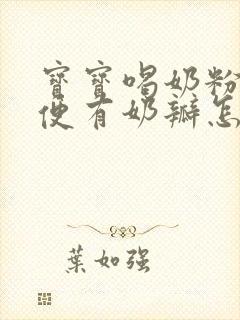 寶寶喝奶粉
便有奶瓣怎
葉如強